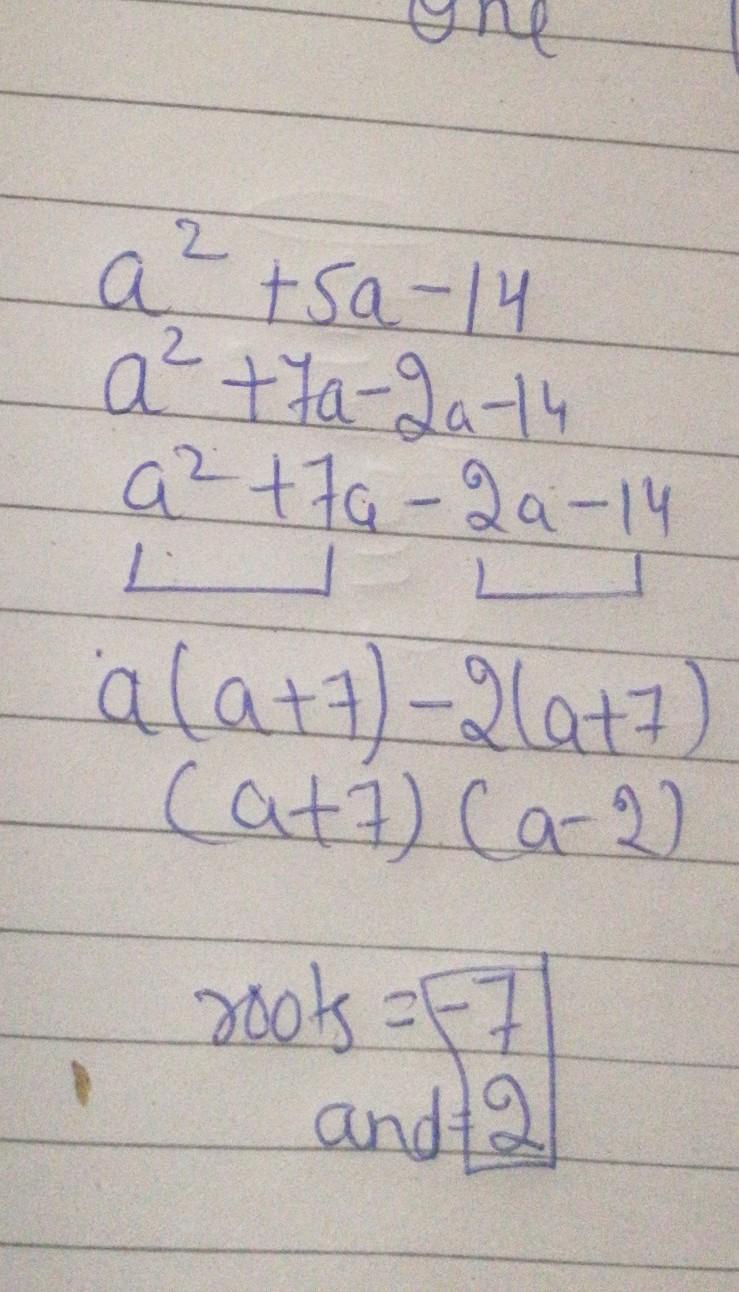 one
a² + 5a - 14
a² + 7a - 2a - 14
a² + 7a - 2a - 14
a(a+7) - 2(a+7)
(a+7) (a-2)
roots = -7
and = 2